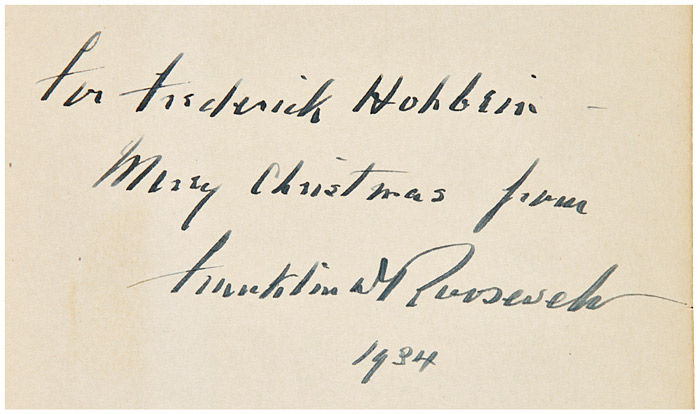 For Frederick Hohbein –
Merry Christmas from
Franklin D Roosevelt
1934